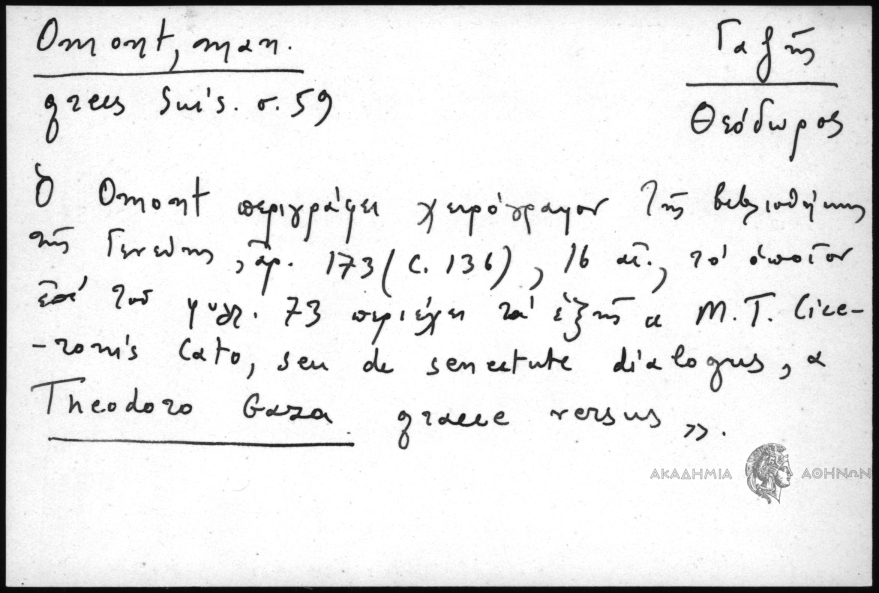 Omont, man.
grecs Suis. σ. 59
Γαζῆς
Θεόδωρος
Ὁ Omont περιγράφει χειρόγραφον τῆς βιβλιοθήκης
τῆς Γενεύης, ἀρ. 173 (C. 136), 16 αἰ., τὸ ὁποῖον
ἐπὶ τοῦ φυλ. 73 περιέχει τὰ ἑξῆς « M. T. Cice-
-ronis Cato, seu de senectute dialogus, a
Theodoro Gaza graece versus ».
ΑΚΑΔΗΜΙΑ ΑΘΗΝΩΝ